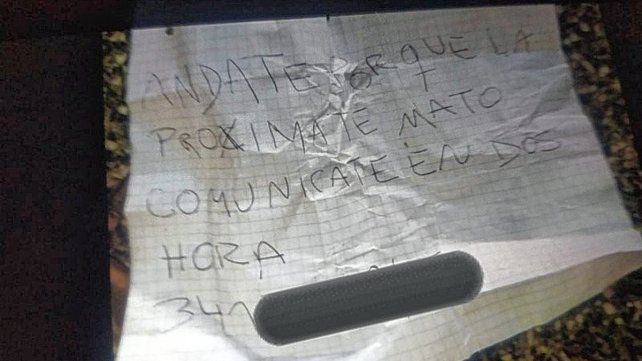 ANDATE PORQUE LA
PROXIMA TE MATO
COMUNICATE EN DOS
HORA
341